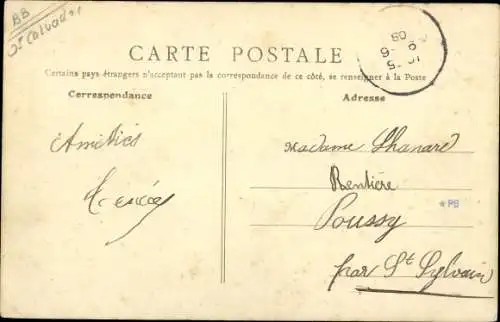 BB
Calvados
CARTE POSTALE
Certains pays étrangers n'acceptant pas la correspondance de ce côté, se renseigner à la Poste
Correspondance
Adresse
Amitiés
Madame Lhanard
Rentière
Poussy
par St Sylvain
*PB
08